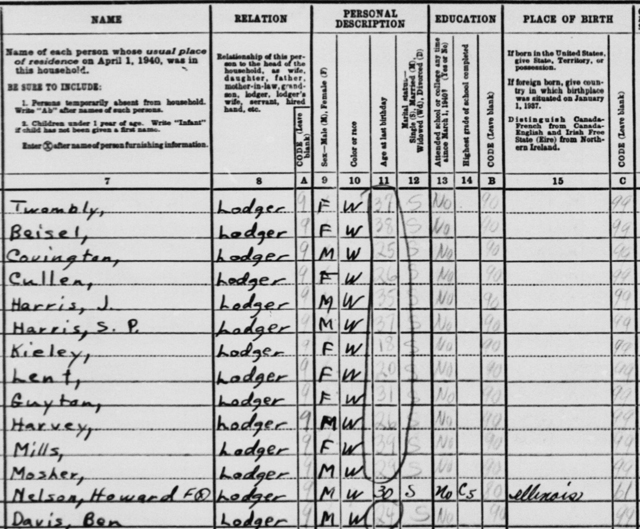 NAME RELATION PERSONAL DESCRIPTION EDUCATION PLACE OF BIRTH
Name of each person whose usual place
of residence on April 1, 1940, was in
this household.
BE SURE TO INCLUDE:
1. Persons temporarily absent from household.
Write "Ab" after names of such persons.
2. Children under 1 year of age. Write "Infant"
if child has not been given a first name.
Enter Ⓧ after name of person furnishing information.
Relationship of this per-
son to the head of the
household, as wife,
daughter, father,
mother-in-law, grand-
son, lodger, lodger's
wife, servant, hired
hand, etc.
CODE (Leave
blank)
Sex—Male (M), Female (F)
Color or race
Age at last birthday
Marital status—
Single (S), Married (M),
Widowed (Wd), Divorced (D)
Attended school or college any time
since March 1, 1940? (Yes or No)
Highest grade of school completed
CODE (Leave blank)
If born in the United States,
give State, Territory, or
possession.
If foreign born, give coun-
try in which birthplace
was situated on January
1, 1937.
Distinguish Canada-
French from Canada-
English and Irish Free
State (Eire) from North-
ern Ireland.
CODE (Leave blank)
7 8 A 9 10 11 12 13 14 B 15 C
Twombly, Lodger 9 F W S No 90 99
Beisel, Lodger 9 F W 38 S No 90 99
Covington, Lodger 9 M W 25 S No 90 99
Cullen, Lodger 9 F W 26 S No 90 99
Harris, J. Lodger 9 M W 35 S No 90 99
Harris, S. P. Lodger 9 M W S No 90 99
Kieley, Lodger 9 F W 18 S No 90 99
Lent, Lodger 9 F W 20 S No 90 99
Guyton, Lodger 9 F W 31 S No 90 99
Harvey, Lodger 9 M W 26 S No 90 99
Mills, Lodger 9 F W S No 90 99
Mosher, Lodger 9 M W S No 90 99
Nelson, Howard F Ⓧ Lodger 9 M W 30 S No C5 Illinois 61
Davis, Ben Lodger 9 M W S No 90 99